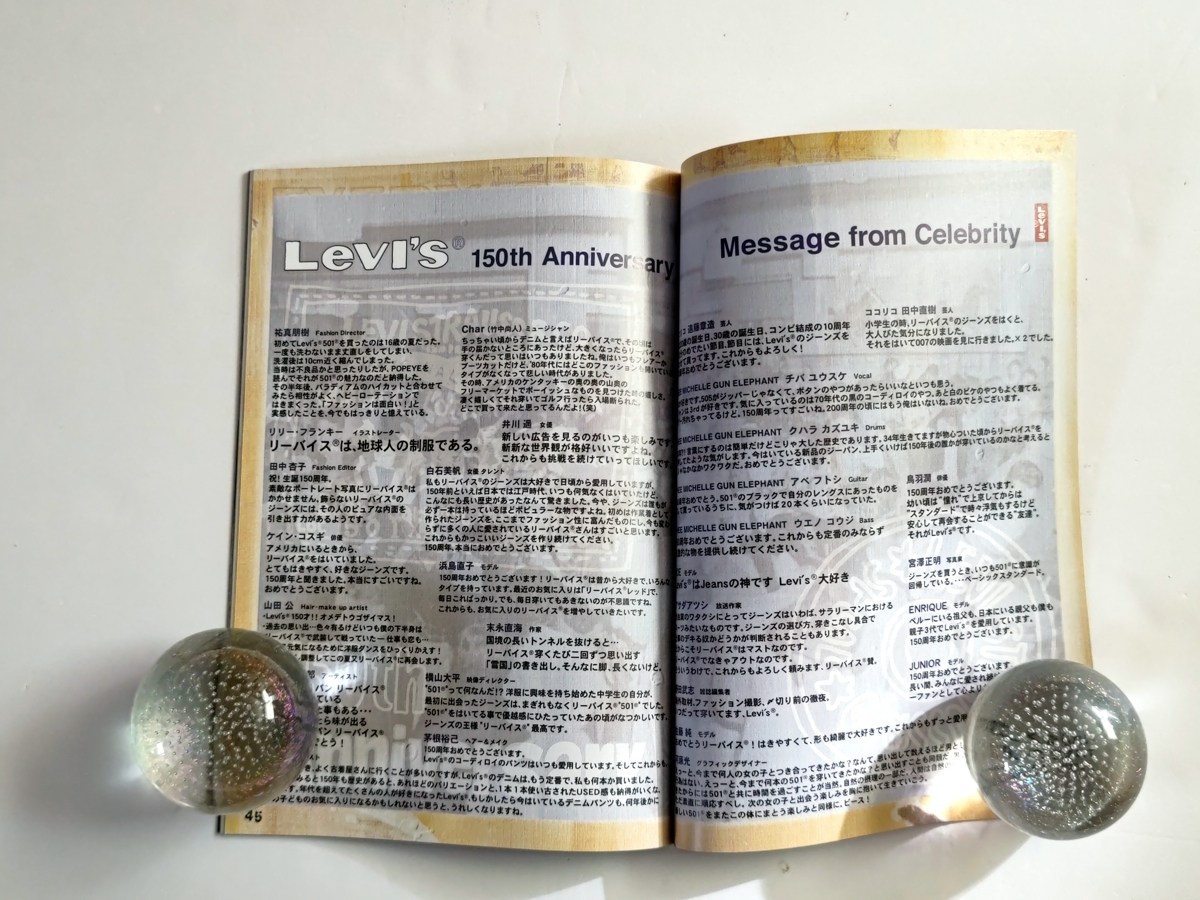 Levi's® 150th Anniversary
祐真朋樹 Fashion Director
初めてLevi's®501®を買ったのは16歳の夏だった。
一度も洗わないまま丈直しをしてしまい、
洗濯後は10cm近く縮んでしまった。
当時は不良品かと思ったりしたが、POPEYEを
読んでそれが501®の魅力なのだと納得した。
その半年後、パラディアムのハイカットと合わせて
みたら相性がよく、ヘビーローテーションで
はきまくった。「ファッションは面白い!」と
実感したことを、今でもはっきりと憶えている。
リリー・フランキー イラストレーター
リーバイス®は、地球人の制服である。
田中杏子 Fashion Editor
祝!生誕150周年。
素敵なポートレート写真にリーバイス®は
かかせません。飾らないリーバイス®の
ジーンズには、その人のピュアな内面を
引き出す力があるようです。
ケイン・コスギ 俳優
アメリカにいるときから、
リーバイス®をはいていました。
とてもはきやすく、好きなジーンズです。
150周年と聞きました。本当にすごいですね。
おめでとうございます。
山田 公 Hair・make up artist
Levi's®150才!!オメデトウゴザイマス!
過去の思い出…色々有るけどいつも僕の下半身は
リーバイス®で武装して戦っていた―仕事も恋も…
元気になるために洋服ダンスをひっくりかえす!
調整してこの夏又リーバイス®に再会します。
アーティスト
パン リーバイス®
ている
事もある…
たら味が出る
パン リーバイス®
とう!
Char(竹中尚人) ミュージシャン
ちっちゃい頃からデニムと言えばリーバイス®で、その頃は
手の届かないところにあったけど、大きくなったらリーバイス®
穿くんだって思いはいつもありましたね。俺はいつもフレアーか
ブーツカットだけど、'80年代にはどこのファッションも
タイプがなくなって悲しい時代がありました。
その時、アメリカのケンタッキーの奥の奥の山奥の
フリーマーケットでボーイッシュなものを見つけた時の嬉しさ。
凄く嬉しくてそれ穿いてゴルフ行ったら入場断られた。
どこで買って来たと思ってるんだよ!(笑)
井川遥 女優
新しい広告を見るのがいつも楽しみです
斬新な世界観が格好いいですよね。
これからも挑戦を続けていってほしいです
白石美帆 女優 タレント
私もリーバイス®のジーンズは大好きで日頃から愛用していますが、
150年前といえば日本では江戸時代、いつも何気なくはいていたけど、
こんなにも長い歴史があったなんて驚きました。今や、ジーンズは誰もが
必ず一本は持っているほどポピュラーな物ですよね。初めは作業着として
作られたジーンズを、ここまでファッション性に富んだものにし、今も変わ
らずに多くの人に愛されているリーバイス®さんはすごいと思います。
これからもかっこいいジーンズを作り続けてください。
150周年、本当におめでとうございます。
浜島直子 モデル
150周年おめでとうございます!リーバイス®は昔から大好きで、いろんな
タイプを持っています。最近のお気に入りは「リーバイス®レッド」で、
毎日こればっかり。でも、毎日穿いてもあきないのが不思議ですね。
これからも、お気に入りのリーバイス®を増やしていきたいです。
末永直海 作家
国境の長いトンネルを抜けると…
リーバイス®穿くたび二回ずつ思い出す
「雪国」の書き出し。そんなに脚、長くないけど。
横山大平 映像ディレクター
"501®"って何なんだ!?洋服に興味を持ち始めた中学生の自分が、
最初に出会ったジーンズは、まぎれもなくリーバイス®"501®"でした。
"501®"をはいてる事で優越感にひたっていたあの頃がなつかしいです。
ジーンズの王様"リーバイス®"最高です。
茅根裕己 ヘアー&メイク
150周年おめでとうございます。
Levi's®のコーディロイのパンツはいつも愛用しています。そしてこれからも
スト
き、よく古着屋さんに行くことが多いのですが、Levi's®のデニムは、もう定番で、私も何本か買いました。
みると150年も歴史があると、あれほどのバリエーションと、1本1本使い古されたUSED感も納得がいくな。
す。年代を超えてたくさんの人が好きになったLevi's®。もしかしたら今はいているデニムパンツも、何年後かに
の子どものお気に入りになるかもしれないと思うと、うれしくなりますね。
45
Message from Celebrity
LEVI'S
コ 遠藤章造 芸人
の誕生日、30歳の誕生日、コンビ結成の10周年
のめでたい節目、節目には、Levi's®のジーンズを
て買ってます。これからもよろしく!
周年おめでとうございます。
ココリコ 田中直樹 芸人
小学生の時、リーバイス®のジーンズをはくと、
大人びた気分になりました。
それをはいて007の映画を見に行きました。×2でした。
MICHELLE GUN ELEPHANT チバ ユウスケ Vocal
好きです。505がジッパーじゃなくて、ボタンのやつがあったらいいなといつも思う。
ジャンは3rdが好きです。気に入っているのは70年代の黒のコーディロイのやつ。あと白のピケのやつもよく着てる。
汚れちゃってるけど。150周年ってすごいね。200周年の頃にはもう俺はいないね。おめでとうございます。
MICHELLE GUN ELEPHANT クハラ カズユキ Drums
年!言葉にするのは簡単だけどこりゃ大した歴史であります。34年生きてますが物心ついた頃からリーバイスを
してたような気がします。今はいている新品のジーパン、上手くいけば150年後の誰かが穿いているのかなと考えると
なかなかワクワクだ。おめでとうございます。
MICHELLE GUN ELEPHANT アベ フトシ Guitar
年おめでとう。501®のブラックで自分のレングスにあったものを
て買っているうちに、気がつけば20本くらいになっていた。
MICHELLE GUN ELEPHANT ウエノ コウジ Bass
周年おめでとうございます。これからも定番のみならず
的な物を提供し続けてください。
モデル
Levi's®はJeansの神です Levi's®大好き
サダアツシ 放送作家
業のワタクシにとってジーンズはいわば、サラリーマンにおける
ーツみたいなものです。ジーンズの選び方、穿きこなし具合で
のデキる奴かどうかが判断されることもあります。
からこそリーバイス®はマストなのです。
ーバイス®でなきゃアウトなのです。
ういうわけで、これからもよろしく頼みます、リーバイス®賛。
武志 雑誌編集者
外取材、ファッション撮影、〆切り前の徹夜。
つだって穿いてます、Levi's®。
純 モデル
めでとうリーバイス®!はきやすくて、形も綺麗で大好きです。これからもずっと愛用
原光 グラフィックデザイナー
えっーと、今まで何人の女の子とつき合ってきたかな?なんて、思い出して数えるほど男と
はない。えっーと、今まで何本の501®を穿いてきたかな?と思い出すことも同類
からには501®と共に時間を過ごすことが当然。自然の摂理の一部だ。人間は自然
だ素直に順応すべし。次の女の子と出会う楽しみを胸に抱いて生きていこう。
しい501®をまたこの体にまとう楽しみと同様に。ピース!
鳥羽潤 俳優
150周年おめでとうございます。
幼い頃は"憧れ"で上京してからは
"スタンダード"で時々浮気もするけど
安心して再会することができる"友達"。
それがLevi's®です。
宮澤正明 写真家
ジーンズを買うとき、いつも501®に意識が
回帰している。・・・ベーシックスタンダード。
ENRIQUE モデル
ペルーにいる祖父も、日本にいる親父も僕も
親子3代でLevi's®を愛用しています。
150周年おめでとうございます。
JUNIOR モデル
150周年おめでとうございます
長い間、みんなに愛され続
ーファンとして心より